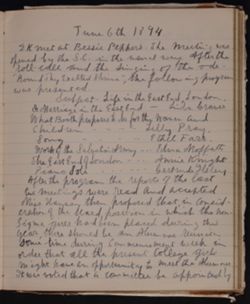 June 6th 1894
ΣK met at Bessie Peppers. The Meeting was
opened by the I.C. in the usual way. After the
roll call and the singing of the ode
" the following program
was presented.
Subject - Life in the East End of London
a Marriage in the East End --- Lila Graves
What Booth proposes to do for the Men and
Children --- Lilly Pray
Song --- Ethel Farr
Work of the Salvation Army --- Edna Moffatt
The East End of London --- Annie Knight
Piano Solo --- Gertrude Ilsley
After the program the reports of the last
two meetings were read and accepted
Miss Hanson then proposed that, in consid-
eration of the hard position in which the
Sigma girls had been placed during this
year, there should be an Alumnae Reunion
some time during Commencement week in
order that all the present College girls
might have an opportunity to meet the Alumnae
It was voted that a committee be appointed by